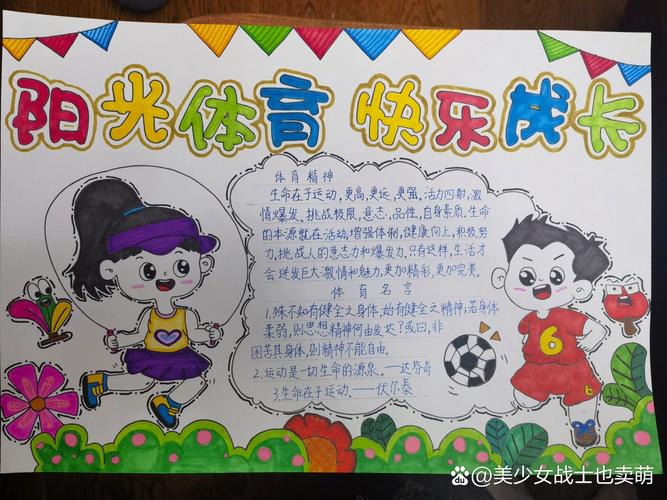 阳光体育 快乐成长
体育精神
生命在于运动,更高,更远,更强。活力四射,激
情爆发,挑战极限,意志,品性,自身素质。生命
的本源就在活动,增强体制,健康向上,积极努
力,挑战人的意志力和爆发力。只有这样,生活才
会迸发巨大激情和魅力,更加精彩,更加完美。
体育名言
1.殊不知有健全之身体,始有健全之精神;若身体
柔弱,则思想精神何由发达?或曰,非
困苦其身体,则精神不能自由。
2.运动是一切生命的源泉。—达芬奇
3.生命在于运动。——伏尔泰
6
Baidu百度 @美少女战士也卖萌